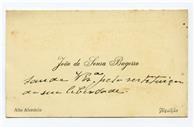 João de Sousa Bagorro
saúda V. Exª pela restituição
da sua liberdade.
Alto Alentejo